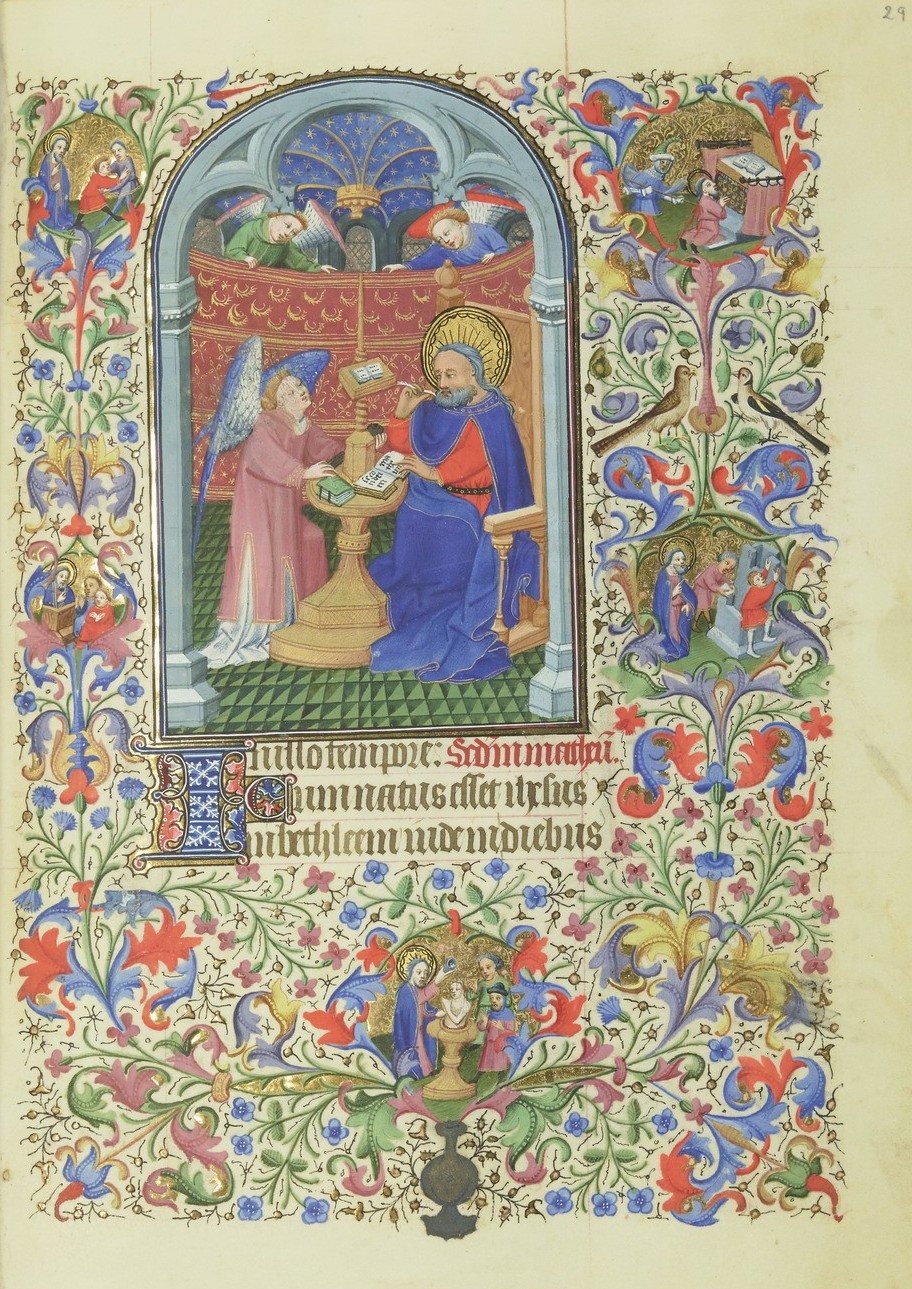 29
In illo tempore: Scdm matheu.
Cum natus esset ihesus
in bethleem iude in diebus